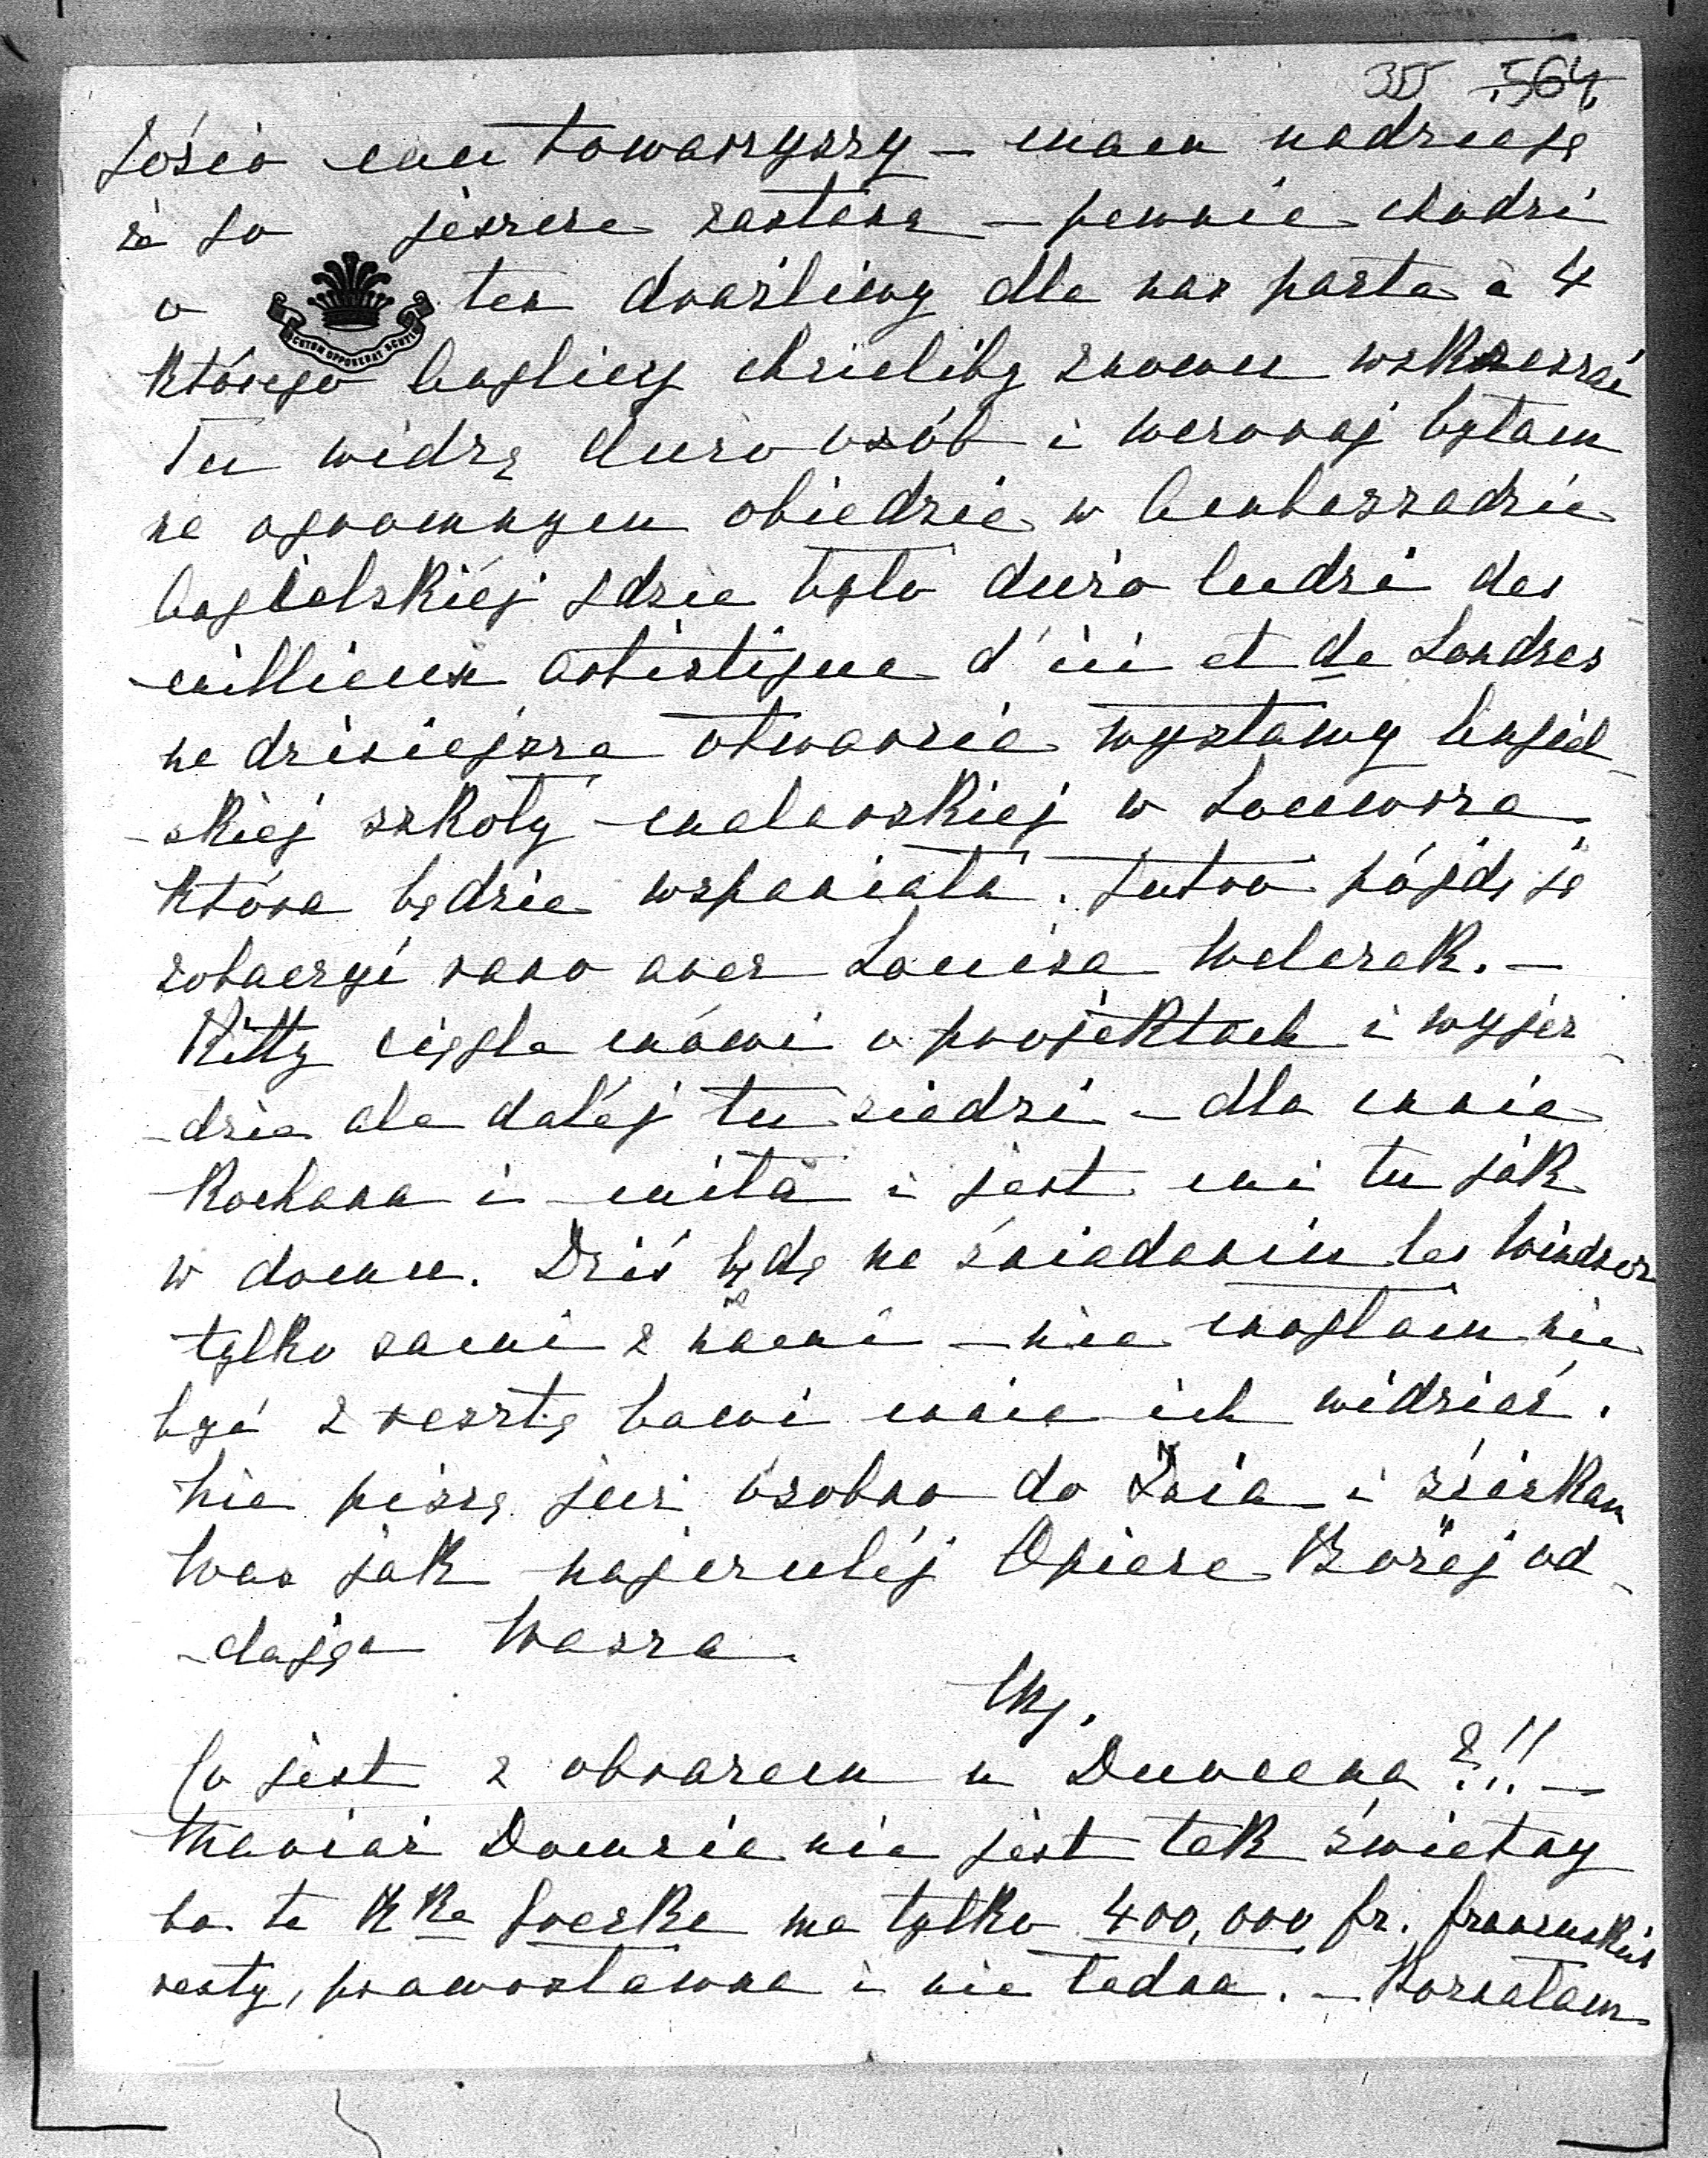 355 564
Józio mu towarzyszy – mam nadzieję
że go jeszcze zastanę – pewnie chodzi
o ten drażliwy dla nas pacte à 4
SCUTUM OPPONEBAT SCUTIS
którego Anglicy chcieliby znowu wskrzeszać
Tu widzę dużo osób i wczoraj byłam
na ogromnym obiedzie w Ambaszadzie
Angielskiéj gdzie było dużo ludzi des
millieux Artistique d'ici et de Londres
na dzisiejsze otwarcie wystawy Angiel-
-skiéj szkoły malarskiej w Louvrze
która będzie wspaniałá. Jutro pójdę ją
zobaczyć rano avec Louise Welczek. –
Kitty ciągle mówi o projektach i wyjez-
-dzie ale daléj tu siedzi – dla mnie
kochana i miła i jest mi tu jak
w domu. Dziś będę na śniadaniu les Windsor
tylko sami z nami – nie mogłam nie
być zresztą bawi mnie ich widzieć.
Nie piszę już osobno do Izia i ściskam
Was jak najczuléj Opiece Bożej od-
-dając Wasza
Co jest z obrazem u Duveena?!! –
Mariaż Domzie nie jest tak świetny
bo ta Kka Grecka ma tylko 400,000 fr. francuskich
renty, prawosławna i nie ładna. – Poznałam